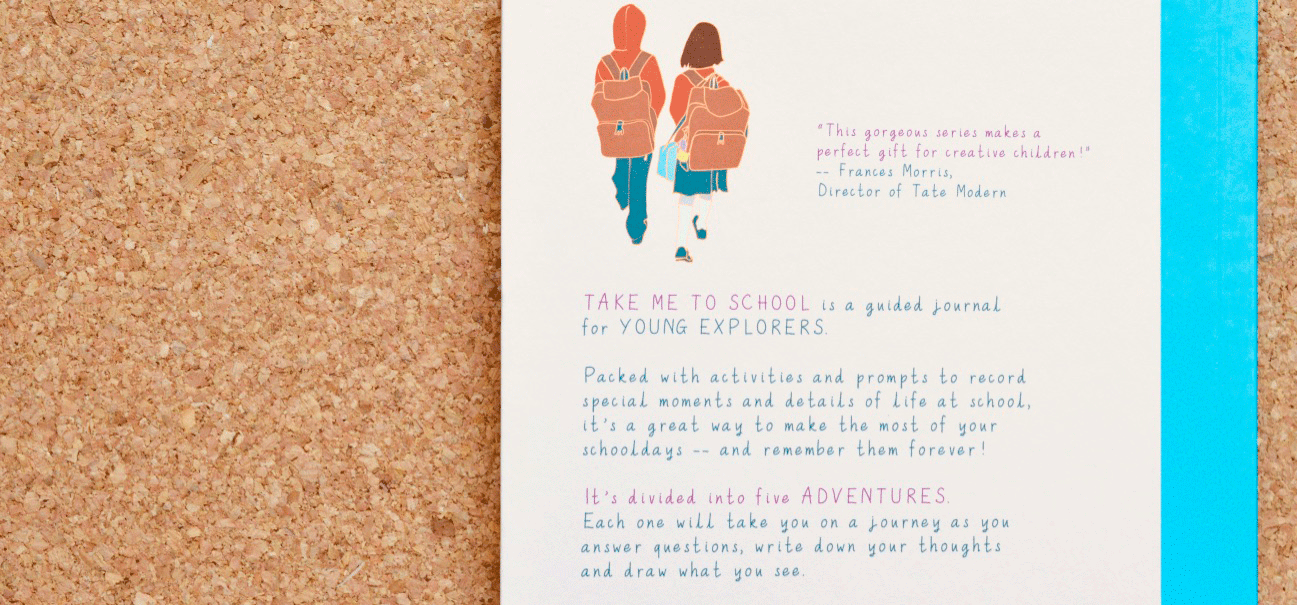 "This gorgeous series makes a
perfect gift for creative children!"
-- Frances Morris,
Director of Tate Modern
TAKE ME TO SCHOOL is a guided journal
for YOUNG EXPLORERS.
Packed with activities and prompts to record
special moments and details of life at school,
it's a great way to make the most of your
schooldays -- and remember them forever!
It's divided into five ADVENTURES.
Each one will take you on a journey as you
answer questions, write down your thoughts
and draw what you see.